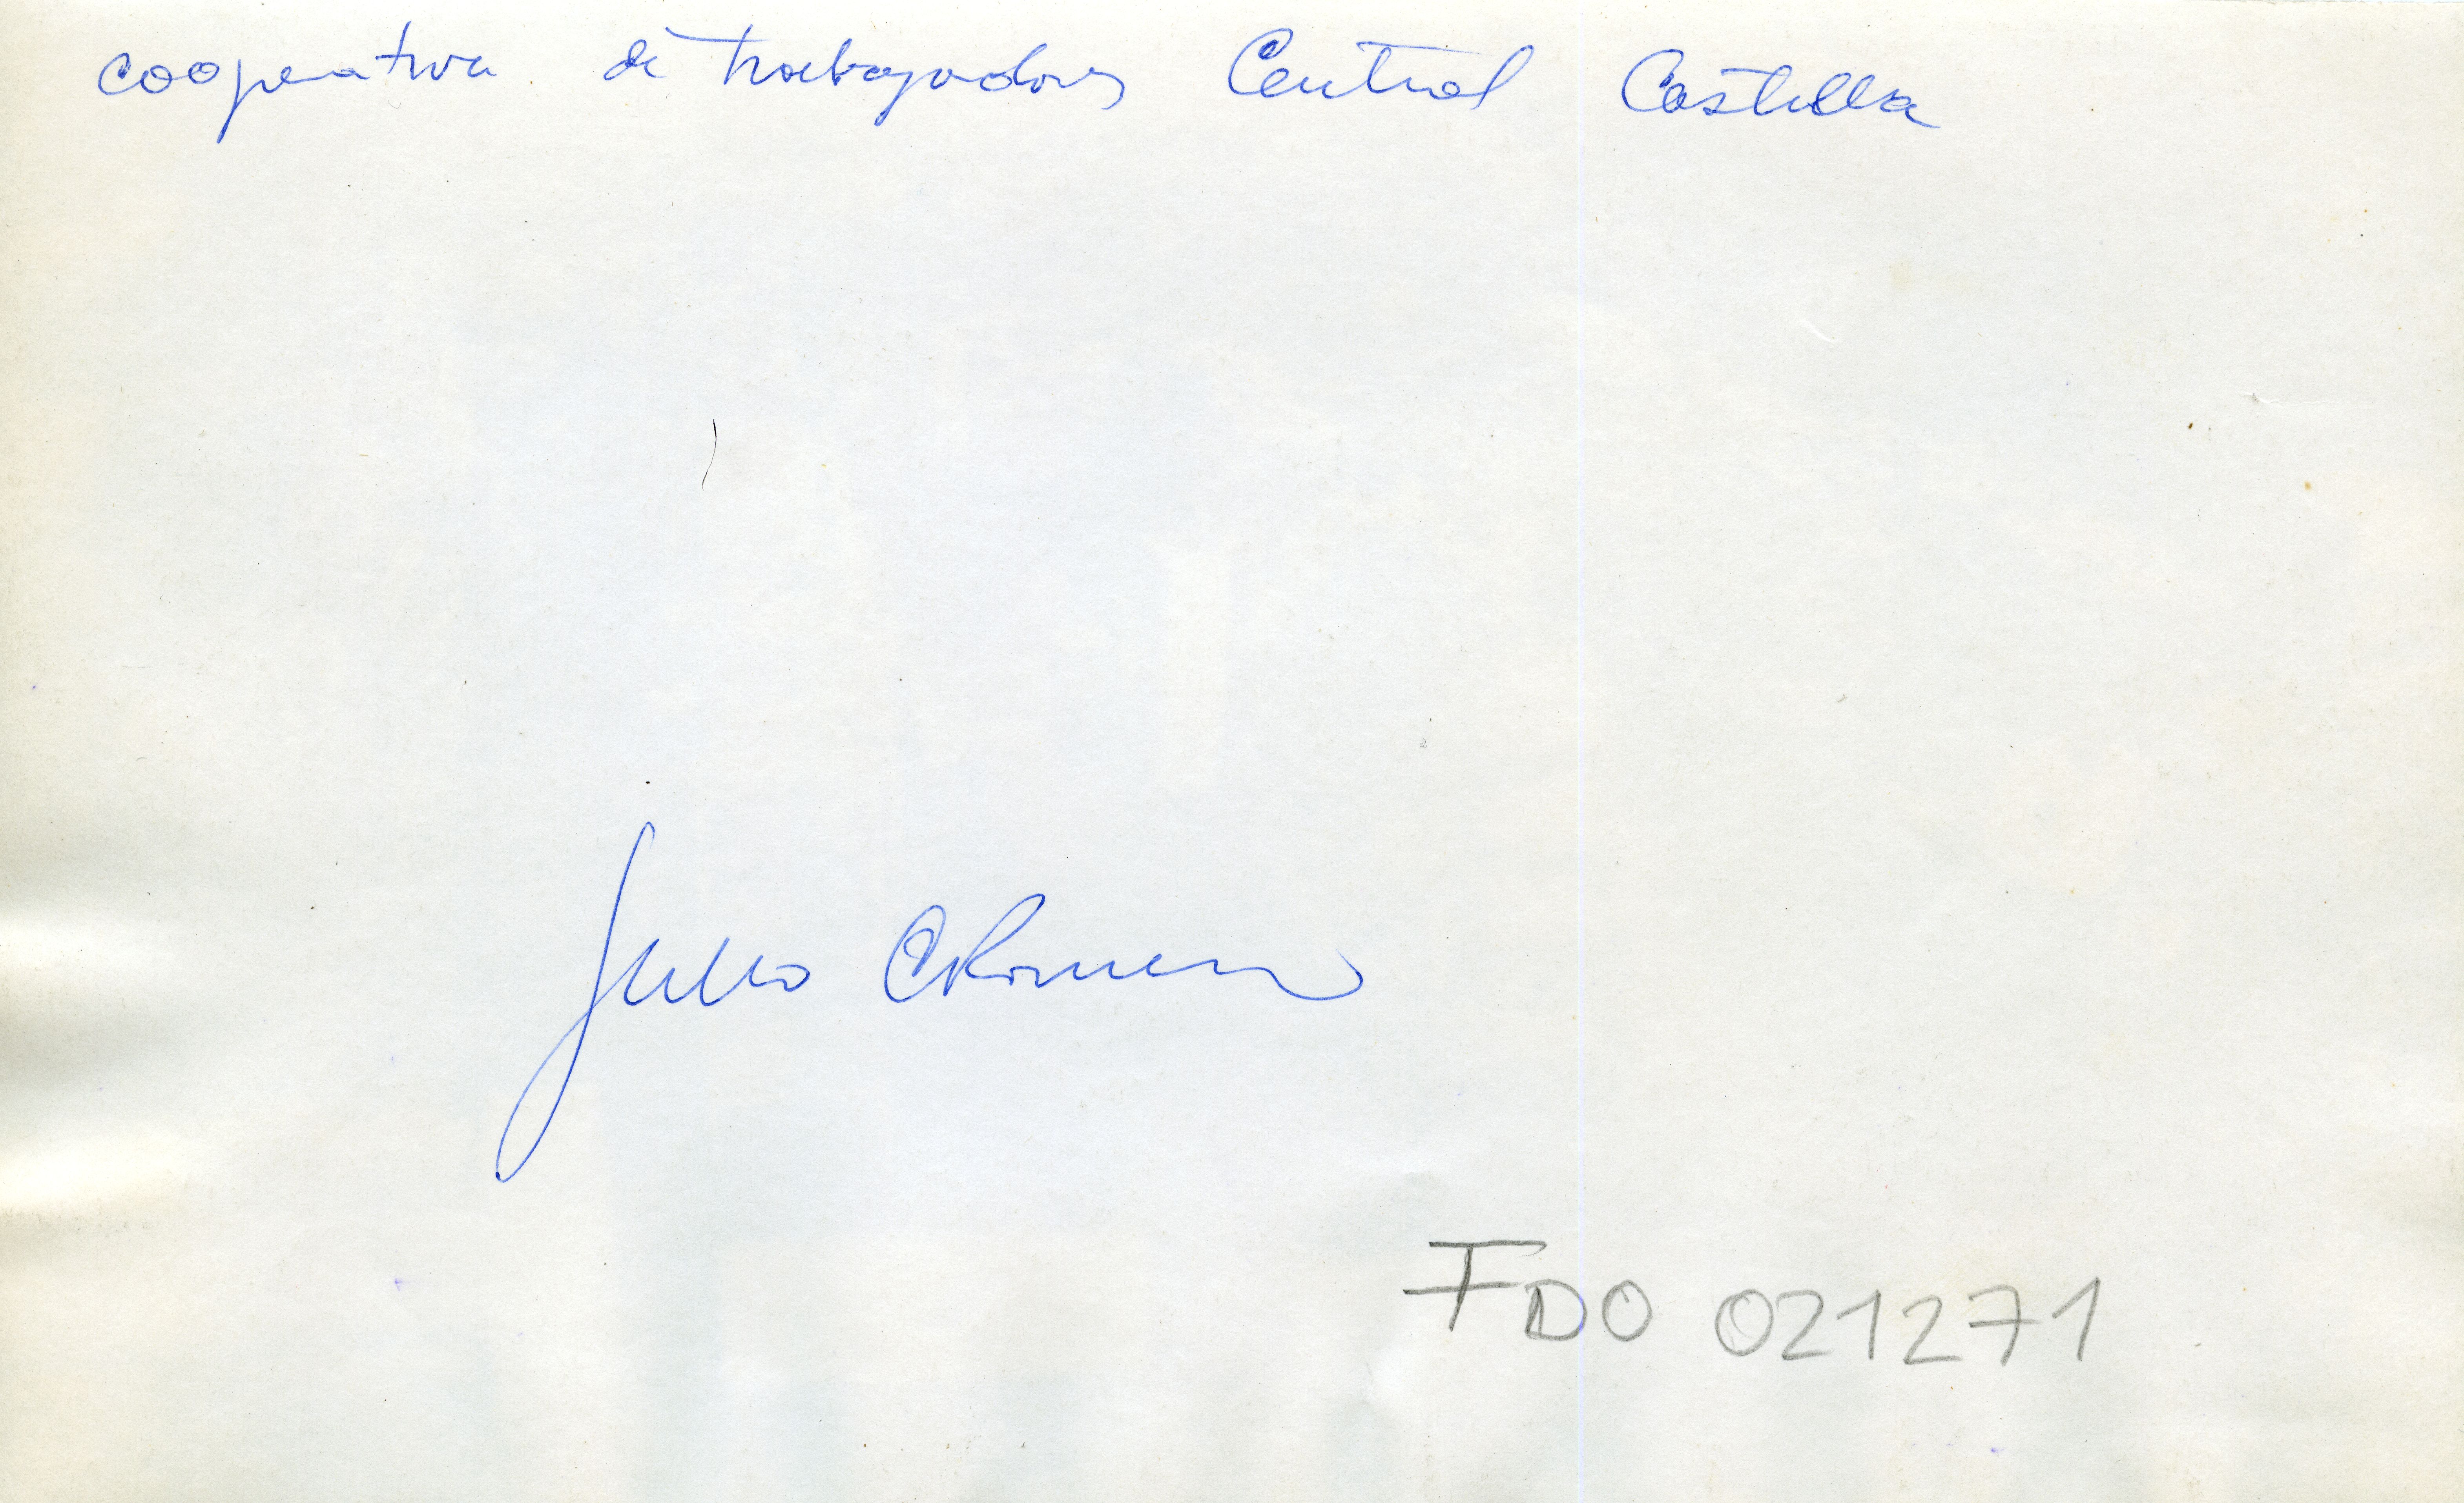 cooperativa de trabajadores Central Castilla
Julio C Romero
FDO 021271